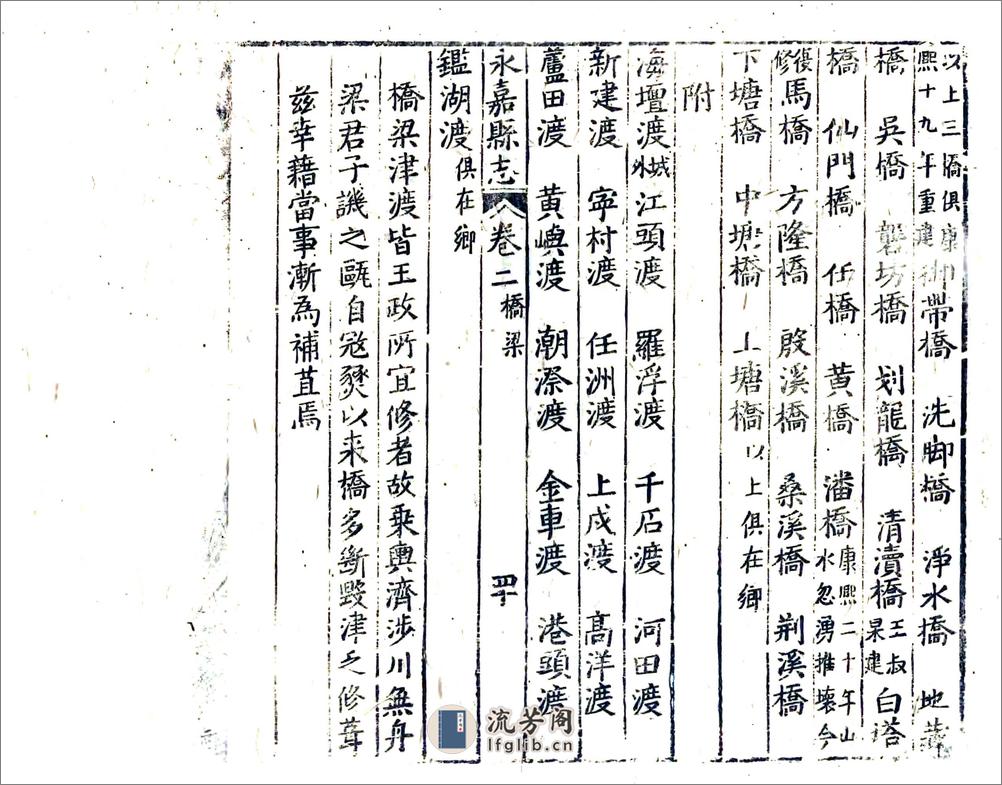 以上三橋俱康熙十九年重建 御帶橋 洗脚橋 淨水橋 地
橋 吳橋 礱坊橋 划龍橋 清瀆橋王叔杲建 白塔
橋 仙門橋 任橋 黄橋 潘橋康熙二十年山水忽湧推壞今
復修 馬橋 方隆橋 殷溪橋 桑溪橋 荆溪橋
下塘橋 中塘橋 上塘橋以上俱在鄉
附
海壇渡城外 江頭渡 羅浮渡 千石渡 河田渡
新建渡 寜村渡 任洲渡 上戍渡 高洋渡
蘆田渡 黄嶼渡 潮漈渡 金車渡 港頭渡
永嘉縣志 卷二 橋梁 四十
鑑湖渡俱在鄉
橋梁津渡皆王政所宜修者故乘輿濟涉川無舟
梁君子譏之甌自宼燹以来橋多斷毁津乏修葺
兹幸藉當事漸為補苴焉
流芳阁
lfglib.cn